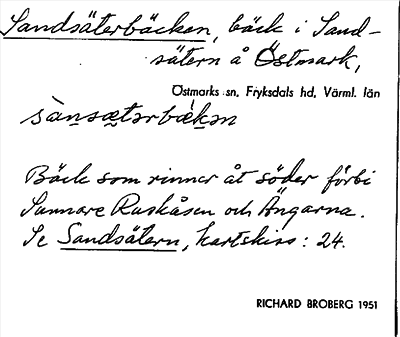 Sandsäterbäcken, bäck i Sand-
sätern å Östmark,
Östmarks sn, Fryksdals hd, Värml. län
sànsætərbækən
Bäck som rinner åt söder förbi
Sunnare Ruskåsen och Ängarna.
Se Sandsätern, kartskiss: 24.
RICHARD BROBERG 1951